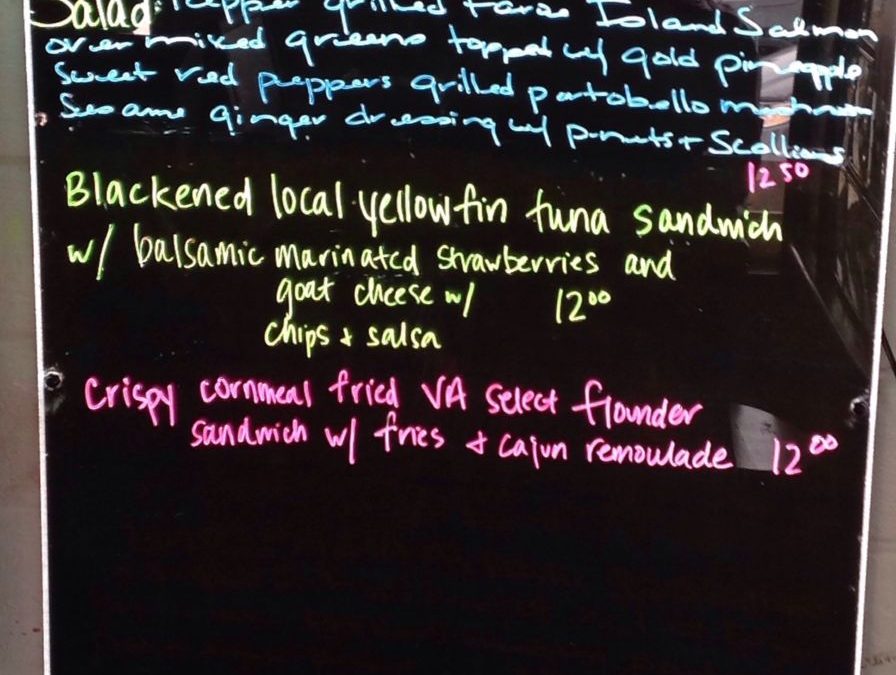 Salad: Pepper grilled Faroe Island Salmon
over mixed greens topped w/ gold pineapple
Sweet red peppers grilled portobello mushroom
Sesame ginger dressing w/ p-nuts + Scallions
12 50
Blackened local yellowfin tuna sandwich
w/ balsamic marinated strawberries and
goat cheese w/ 12 00
chips + salsa
Crispy cornmeal fried VA select flounder
sandwich w/ fries + cajun remoulade 12 00